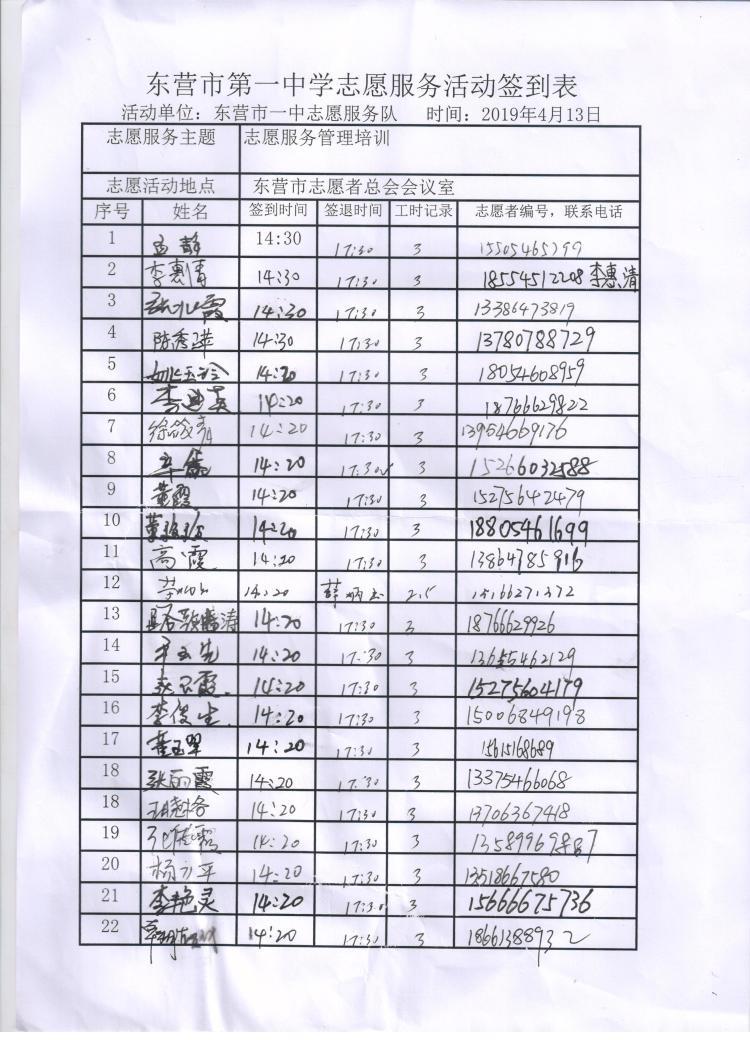 东营市第一中学志愿服务活动签到表
活动单位：东营市一中志愿服务队 时间：2019年4月13日
志愿服务主题 志愿服务管理培训
志愿活动地点 东营市志愿者总会会议室
序号 姓名 签到时间 签退时间 工时记录 志愿者编号，联系电话
1 孟静 14:30 17:30 3
2 李惠清 14:30 17:30 3 18554512208 李惠清
3 14:30 17:30 3 13386473819
4 陈秀萍 14:30 17:30 3 13780788729
5 姚玉玲 17:30 3 18054608959
6 14:20 17:30 3 18766629822
7 14:20 17:30 3 13954669176
8 14:20 17:30 3 15266032588
9 董霞 14:20 17:30 3 15275642479
10 14:20 17:30 3 18805461699
11 高霞 14:20 17:30 3 13864785916
12 14:20 薛炳玉 2.5 15166271372
13 14:20 17:30 3 18766629926
14 14:20 17:30 3
15 14:20 17:30 3 15275604179
16 李俊生 14:20 17:30 3 15006849198
17 14:20 17:30 3 15615168689
18 张丽霞 14:20 17:30 3 13375466068
18 14:20 17:30 3 13706367418
19 14:20 17:30 3
20 14:20 17:30 3 13518667580
21 李艳灵 14:20 17:30 3 15666675736
22 14:20 17:30 3 18661388932